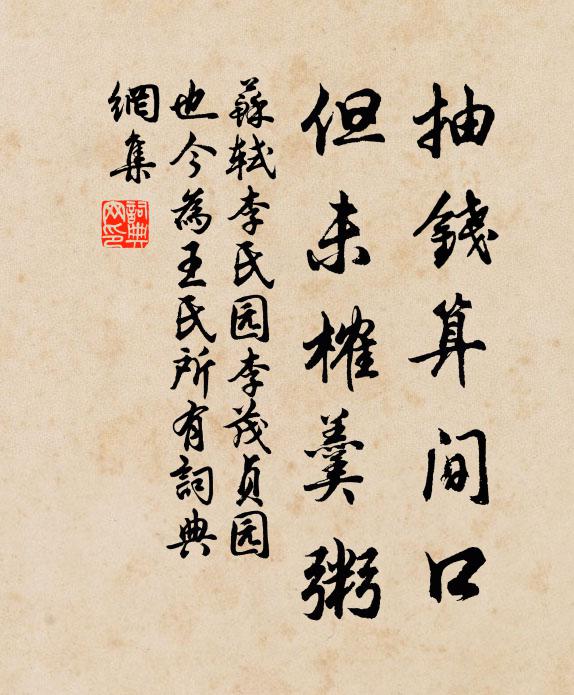 抽錢算間口
但未榷羹粥
蘇軾李氏园李茂貞园
也今為王氏所有詞典
網集
詞典网印